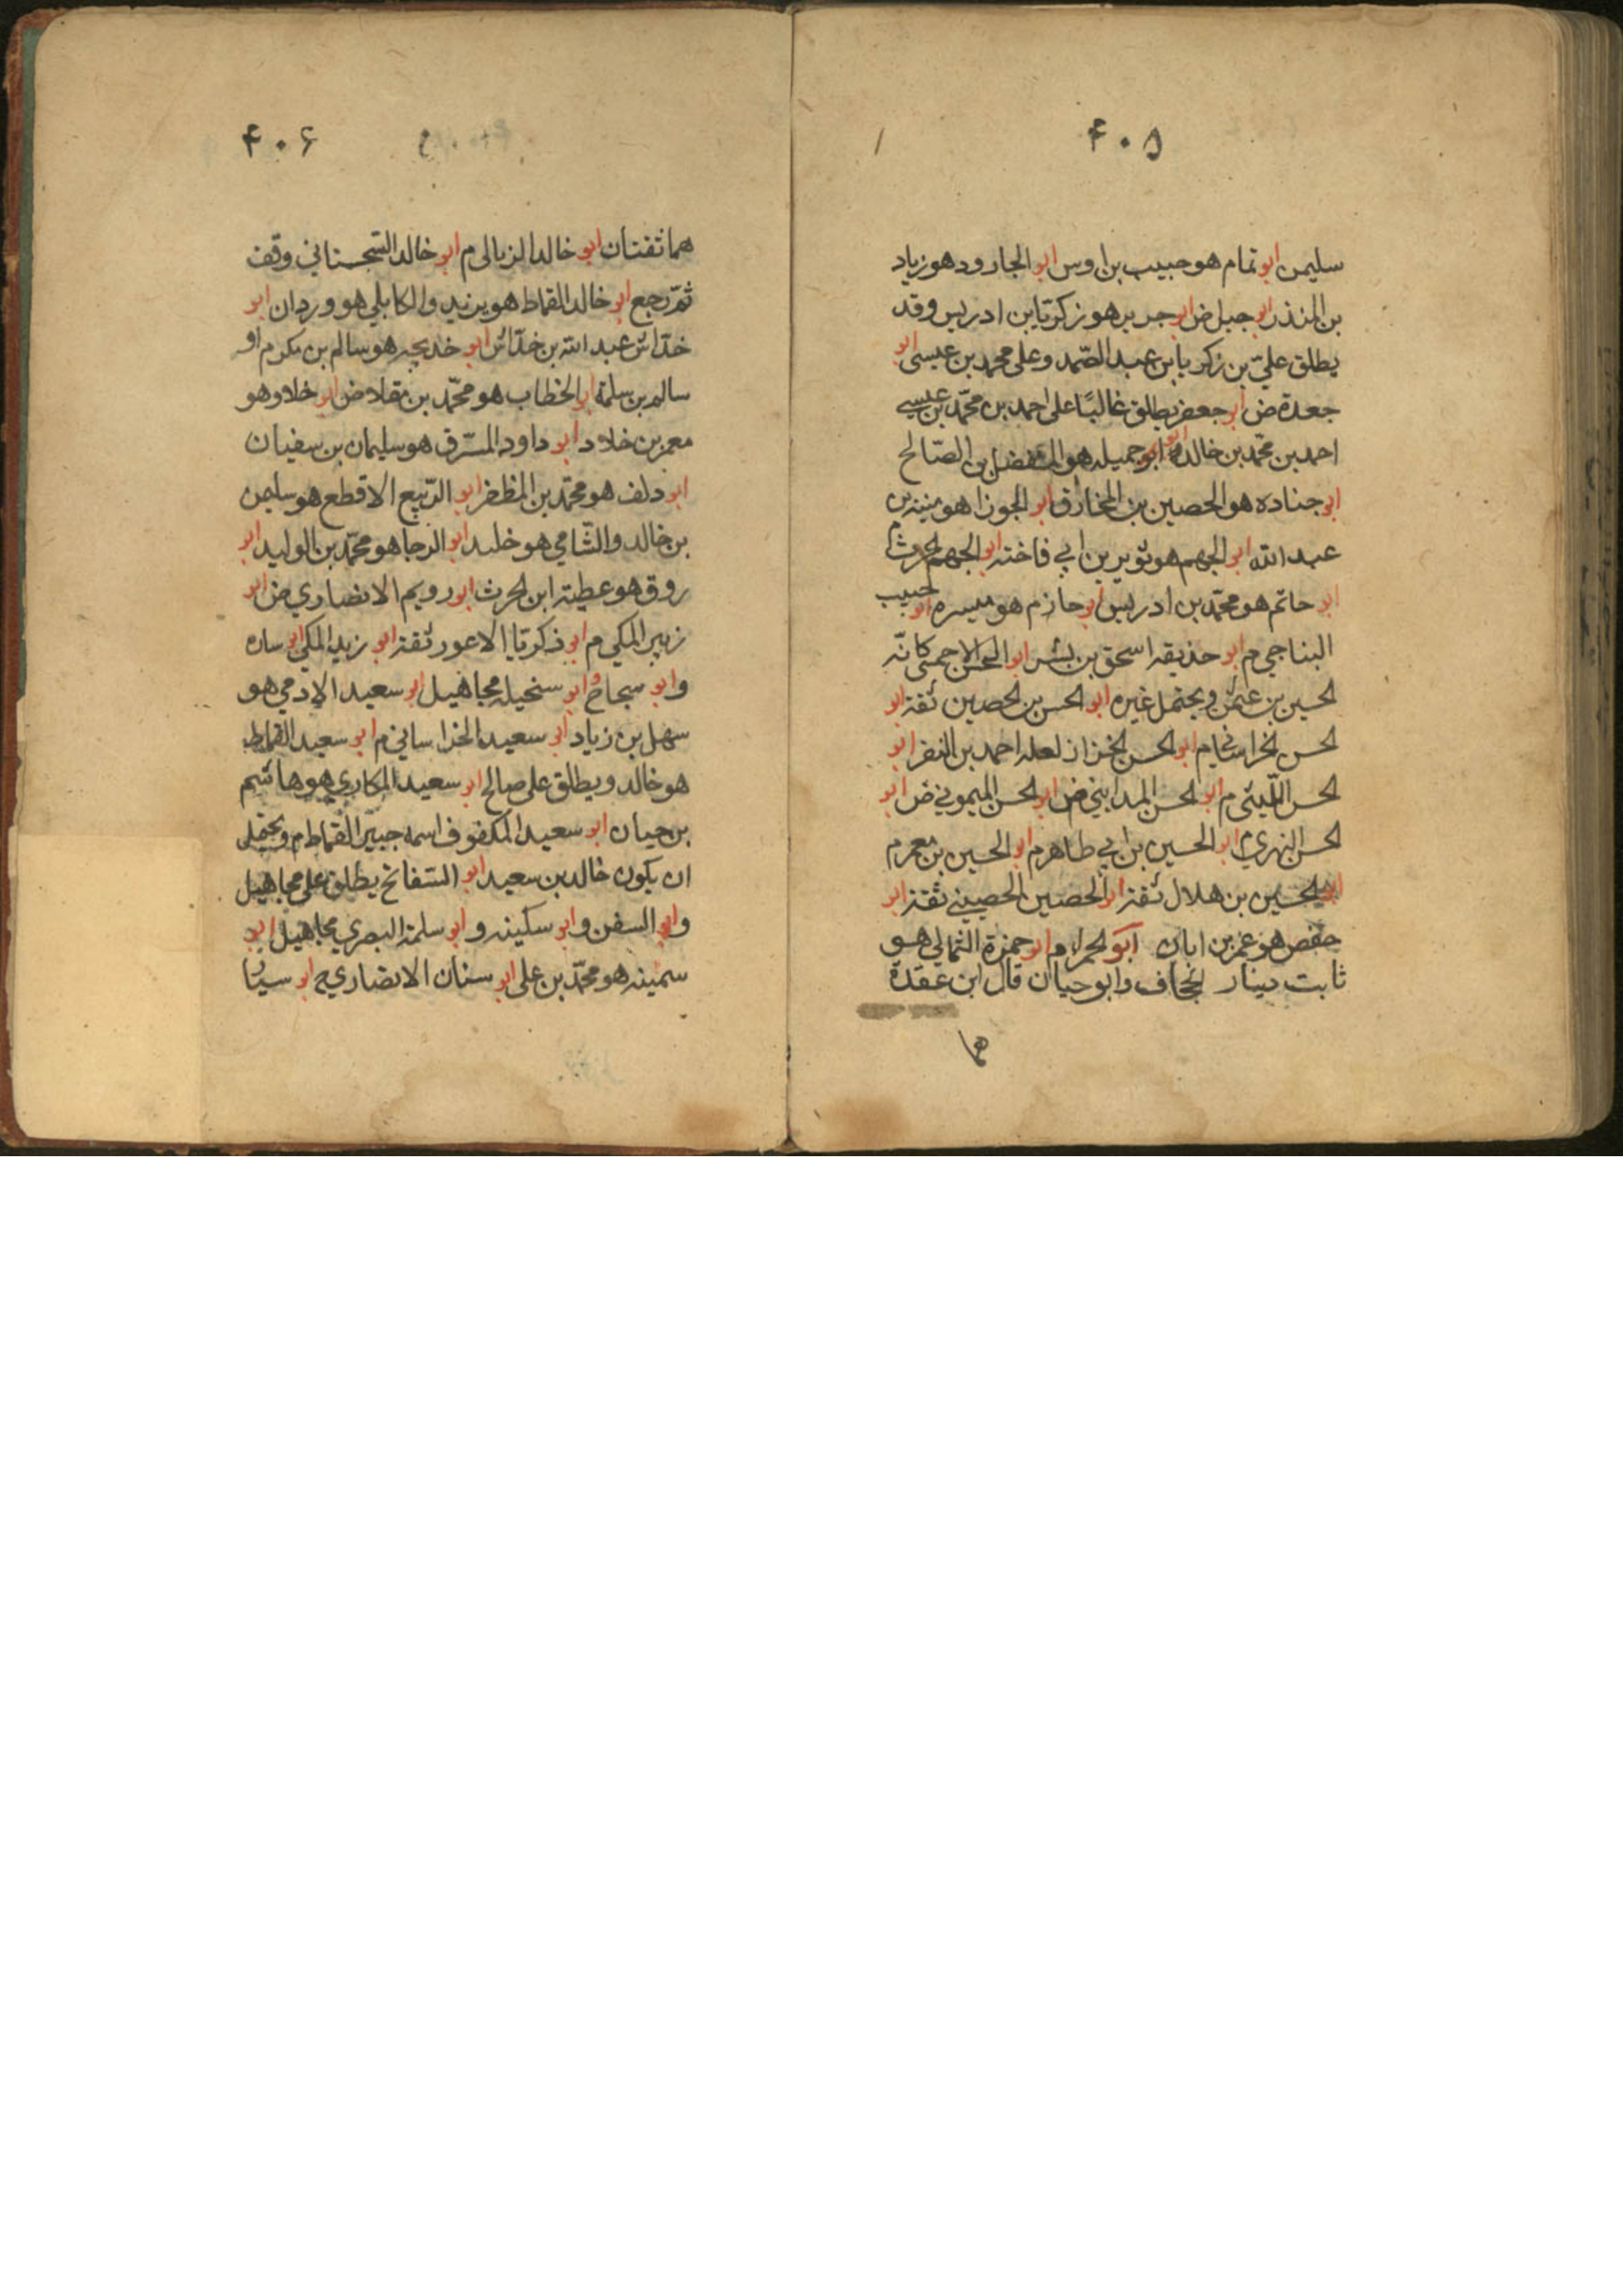 ۴۰۵
سليمن ابو تمام هو حبيب بن اوس ابو الجارود هو زياد
بن المنذر ابو جبل ض ابو جرير هو زكريا بن ادريس وقد
يطلق على بن زكريا بن عبد الصمد وعلى محمد بن عيسى ابو
جعدة ض ابو جعفر يطلق غالبًا على احمد بن محمد بن عيسى
احمد بن محمد بن خالد ابو جميله هو المفضل بن الصالح
ابو جناده هو الحصين بن المخارق ابو الجوزا هو منبه بن
عبد الله ابو الجهم هو ثوير بن ابي فاخته ابو الجهم الحرث م
ابو حاتم هو محمد بن ادريس ابو حازم هو ميسره ابو حبيب
البناجي م ابو حذيقه اسحق بن بشر ابو الحسن الاحمسى كانّه
الحسين بن عثمن ويحتمل غيره ابو الحسن بن الحصين ثقة ابو
الحسن الخراساني م ابو الحسن الخزاز لعله احمد بن النضر ابو
الحسن الليثى م ابو الحسن المدايني ض ابو الحسن الميموني ض ابو
الحسن النهدي م ابو الحسين بن ابي طاهر م ابو الحسين بن معمر م
ابو الحسين بن هلال ثقة ابو الحصين الحصيني ثقة ابو
حفص هو عمر بن ابان ابو الحمراء م ابو حمزة الثمالي هو
ثابت دينار الجحاف وابو حيان قال ابن عقدة
هما
۴۰۶
هما ثقتان ابو خالد الزبالى م ابو خالد السّجستاني وقف
ثمّ رجع ابو خالد القماط هو يزيد والكابلي هو وردان ابو
خدّاش عبد الله بن خدّاش ابو خديجه هو سالم بن مكرم او
سالم بن سلمة ابو الخطاب هو محمّد بن مقلاص ض ابو خلاد هو
معمر بن خلاد ابو داود المسّرق هو سليمان بن سفيان
ابو دلف هو محمّد بن المظفر ابو الرّبيع الاقطع هو سليمن
بن خالد والشّامي هو خليد ابو الرجا هو محمّد بن الوليد ابو
روق هو عطية ابن الحرث ابو رويم الانصاري ض ابو
زبير المكي م ابو زكريا الاعور ثقة ابو زيد المكي ابو ساره
وابو سجاح وابو سنحيله مجاهيل ابو سعيد الادمي هو
سهل بن زياد ابو سعيد الخراساني م ابو سعيد القماط
هو خالد ويطلق على صالح ابو سعيد المكاري هو هاشم
بن حيان ابو سعيد المكفوف اسمه جبير القماط م ويحتمل
ان يكون خالد بن سعيد ابو السّفاتج يطلق على مجاهيل
وابو السفن وابو سكينه وابو سلمة البصري مجاهيل ابو
سمينه هو محمّد بن على ابو سنان الانصاري ح ابو سيّا